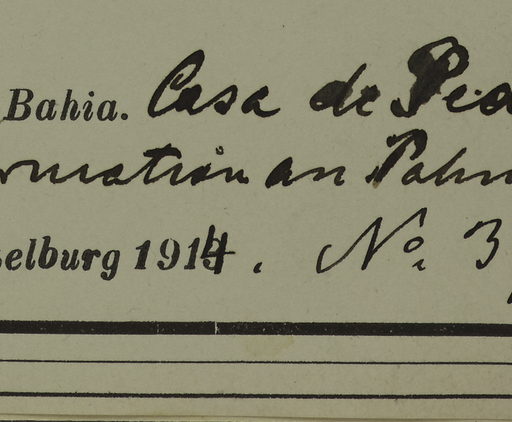 Bahia. Casa de Ped
rmation an Palm
elburg 1914. No. 3